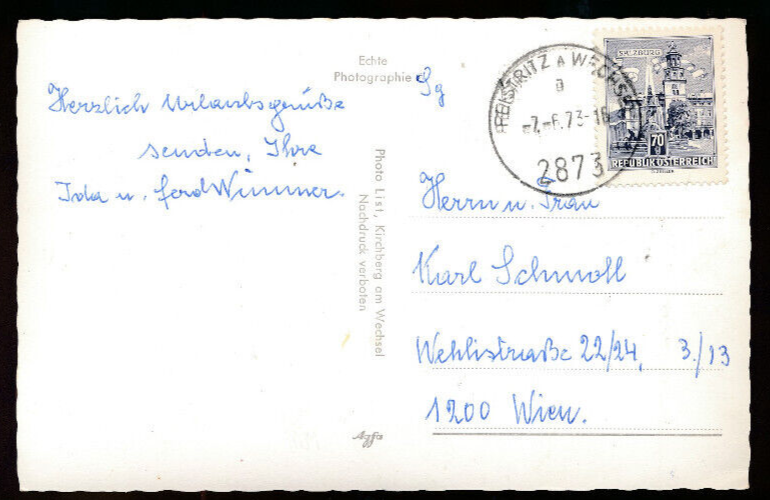 Herzlich Urlaubsgrüße
senden, Ihre
Ida u. Ferd Wimmer.
Echte
Photographie
Photo List, Kirchberg am Wechsel
Nachdruck verboten
Sg
FEISTRITZ A WECHSEL
a
-7.-6.73-16
2873
SALZBURG
70
g
REPUBLIK ÖSTERREICH
Herrn u. Frau
Karl Schmoll
Wehlistraße 22/24, 3./13
1200 Wien.